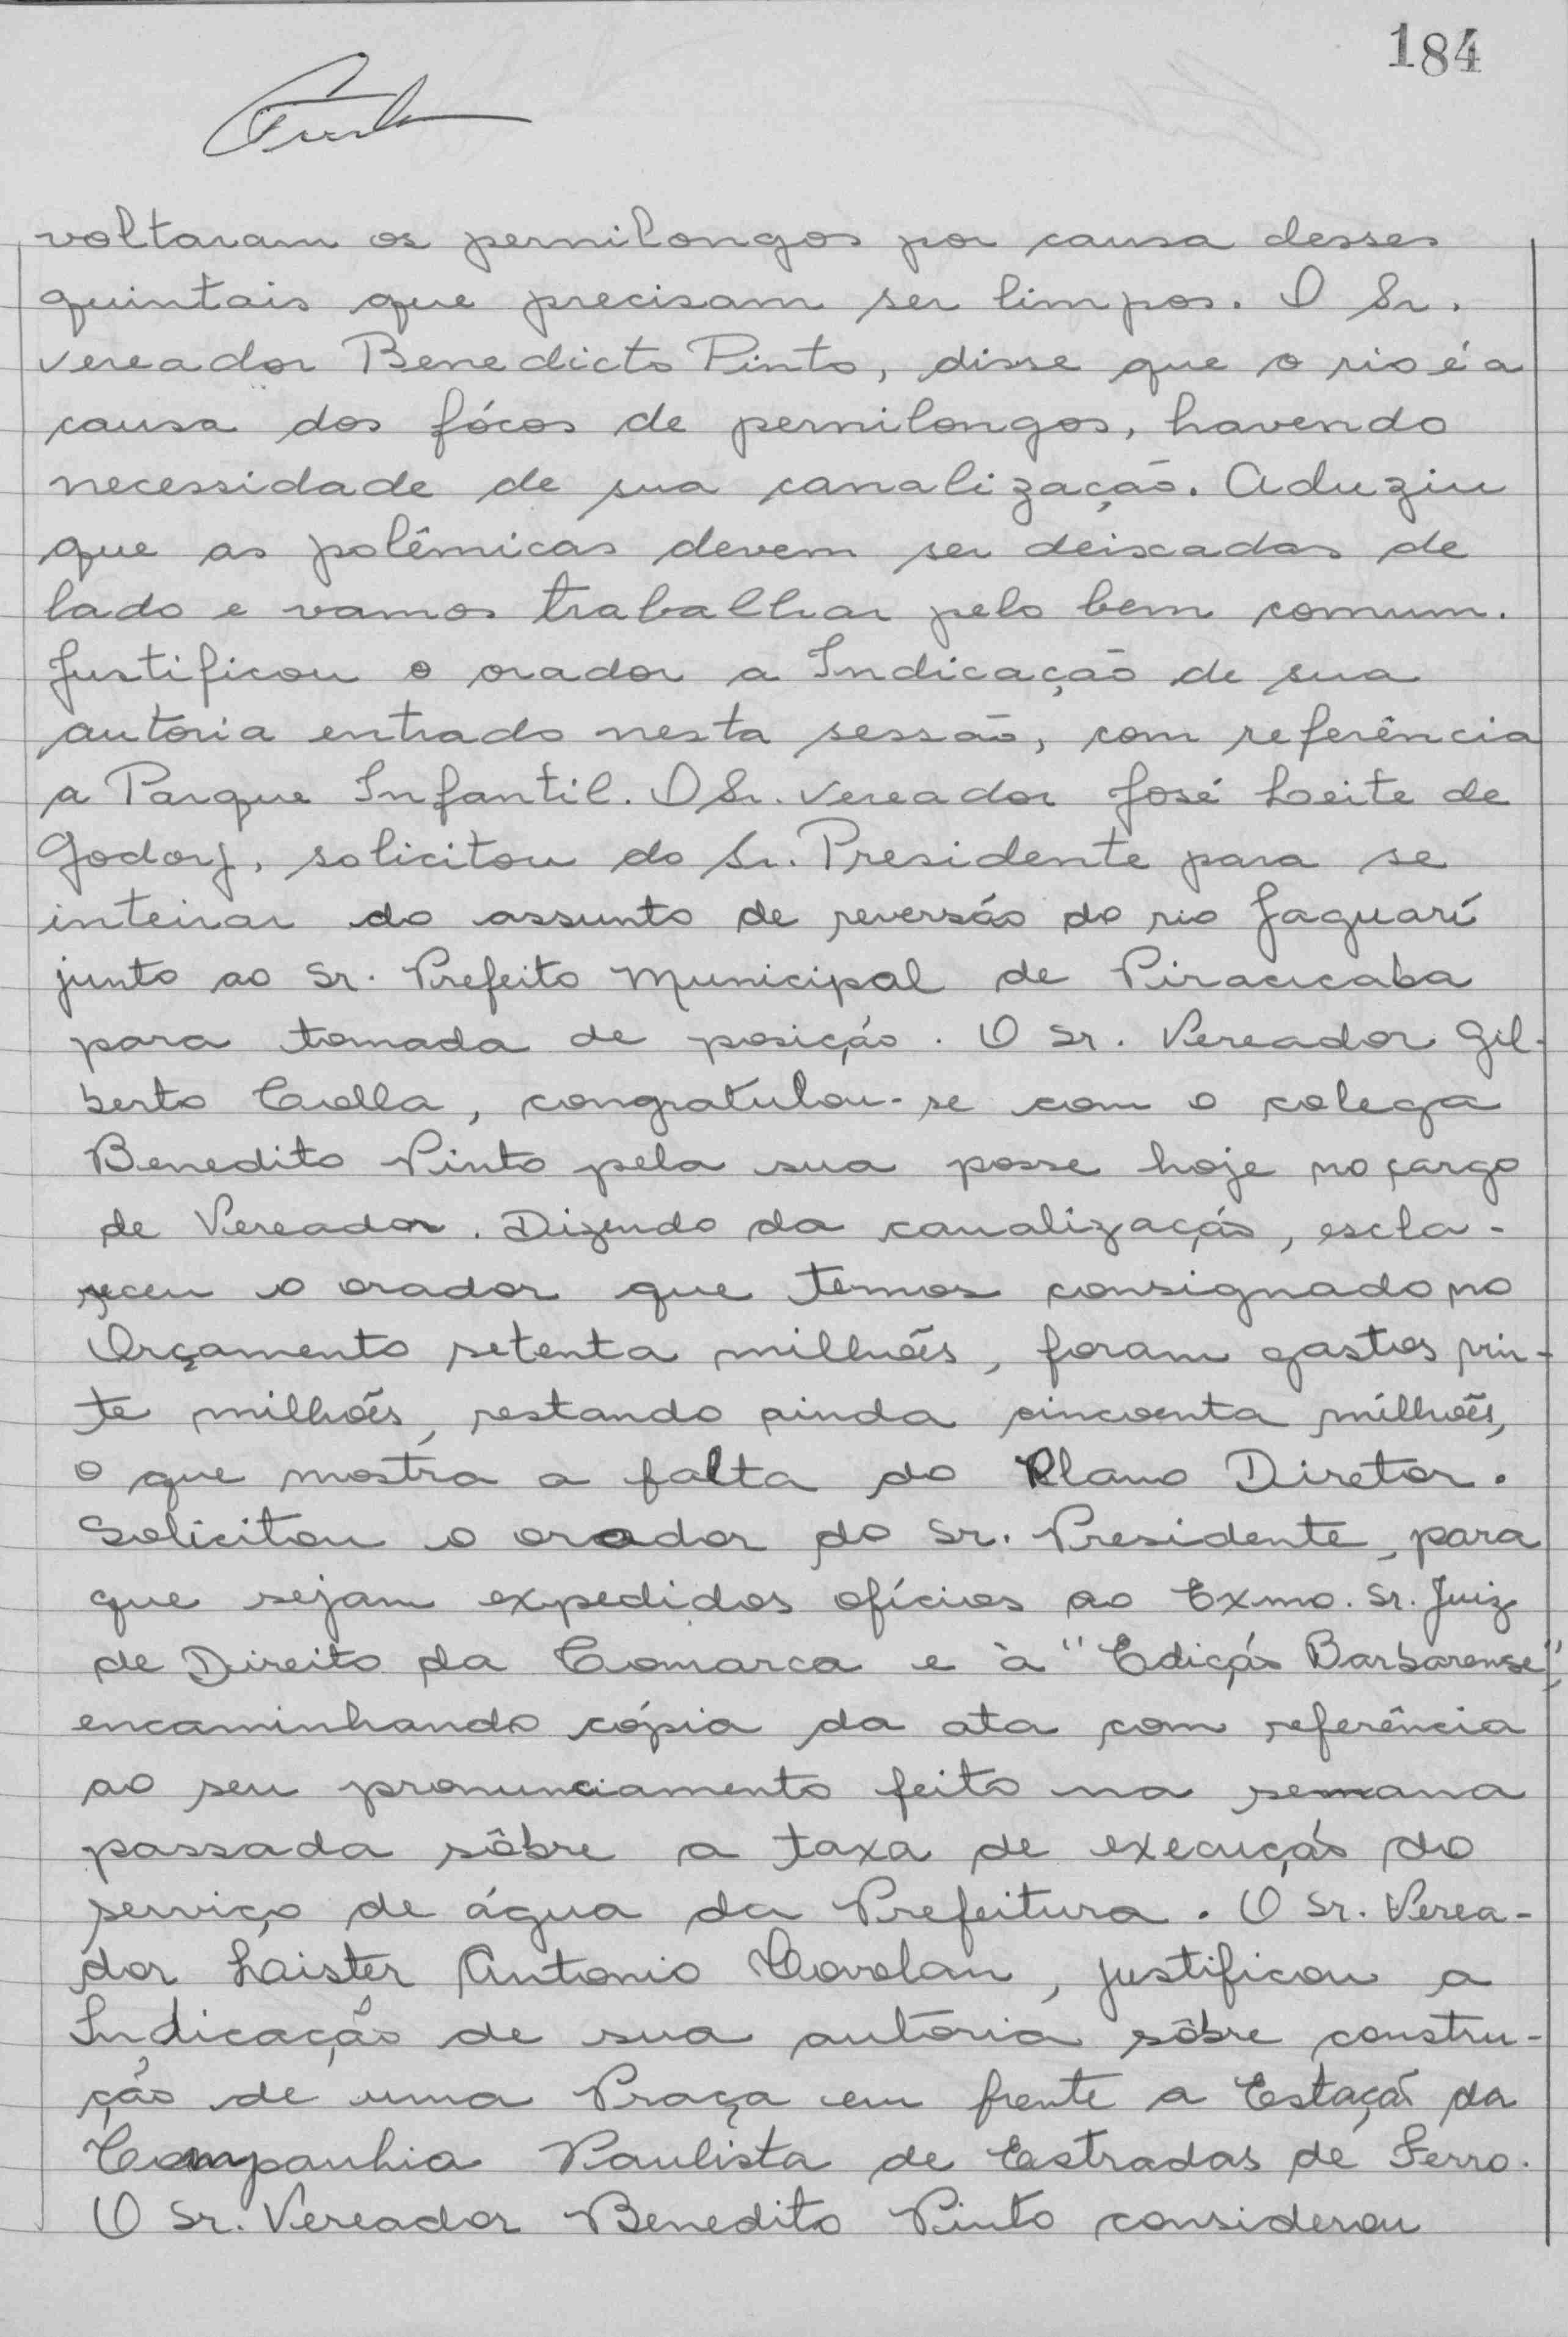 184
voltaram os pernilongos por causa desses
quintais que precisam ser limpos. O Sr.
vereador Benedicto Pinto, disse que o rio é a
causa dos fócos de pernilongos, havendo
necessidade de sua canalização. Aduziu
que as polêmicas devem ser deixadas de
lado e vamos trabalhar pelo bem comum.
Justificou o orador a Indicação de sua
autoria entrado nesta sessão, com referência
a Parque Infantil. O Sr. vereador José Leite de
Godoy, solicitou do Sr. Presidente para se
inteirar do assunto de reversão do rio Jaguarí
junto ao Sr. Prefeito Municipal de Piracicaba
para tomada de posição. O Sr. Vereador Gil-
berto Colla, congratulou-se com o colega
Benedito Pinto pela sua posse hoje no cargo
de Vereador. Dizendo da canalização, escla-
receu o orador que temos consignado no
Orçamento setenta milhões, foram gastos vin-
te milhões, restando ainda cincoenta milhões,
o que mostra a falta do Plano Diretor.
Solicitou o orador do Sr. Presidente, para
que sejam expedidos ofícios ao Exmo. Sr. Juiz
de Direito da Comarca e à "Edição Barbarense",
encaminhando cópia da ata com referência
ao seu pronunciamento feito na semana
passada sôbre a taxa de execução do
serviço de água da Prefeitura. O Sr. Verea-
dor Laister Antonio Covolan, justificou a
Indicação de sua autoria sôbre constru-
ção de uma Praça em frente a Estação da
Companhia Paulista de Estradas de Ferro.
O Sr. Vereador Benedito Pinto considerou